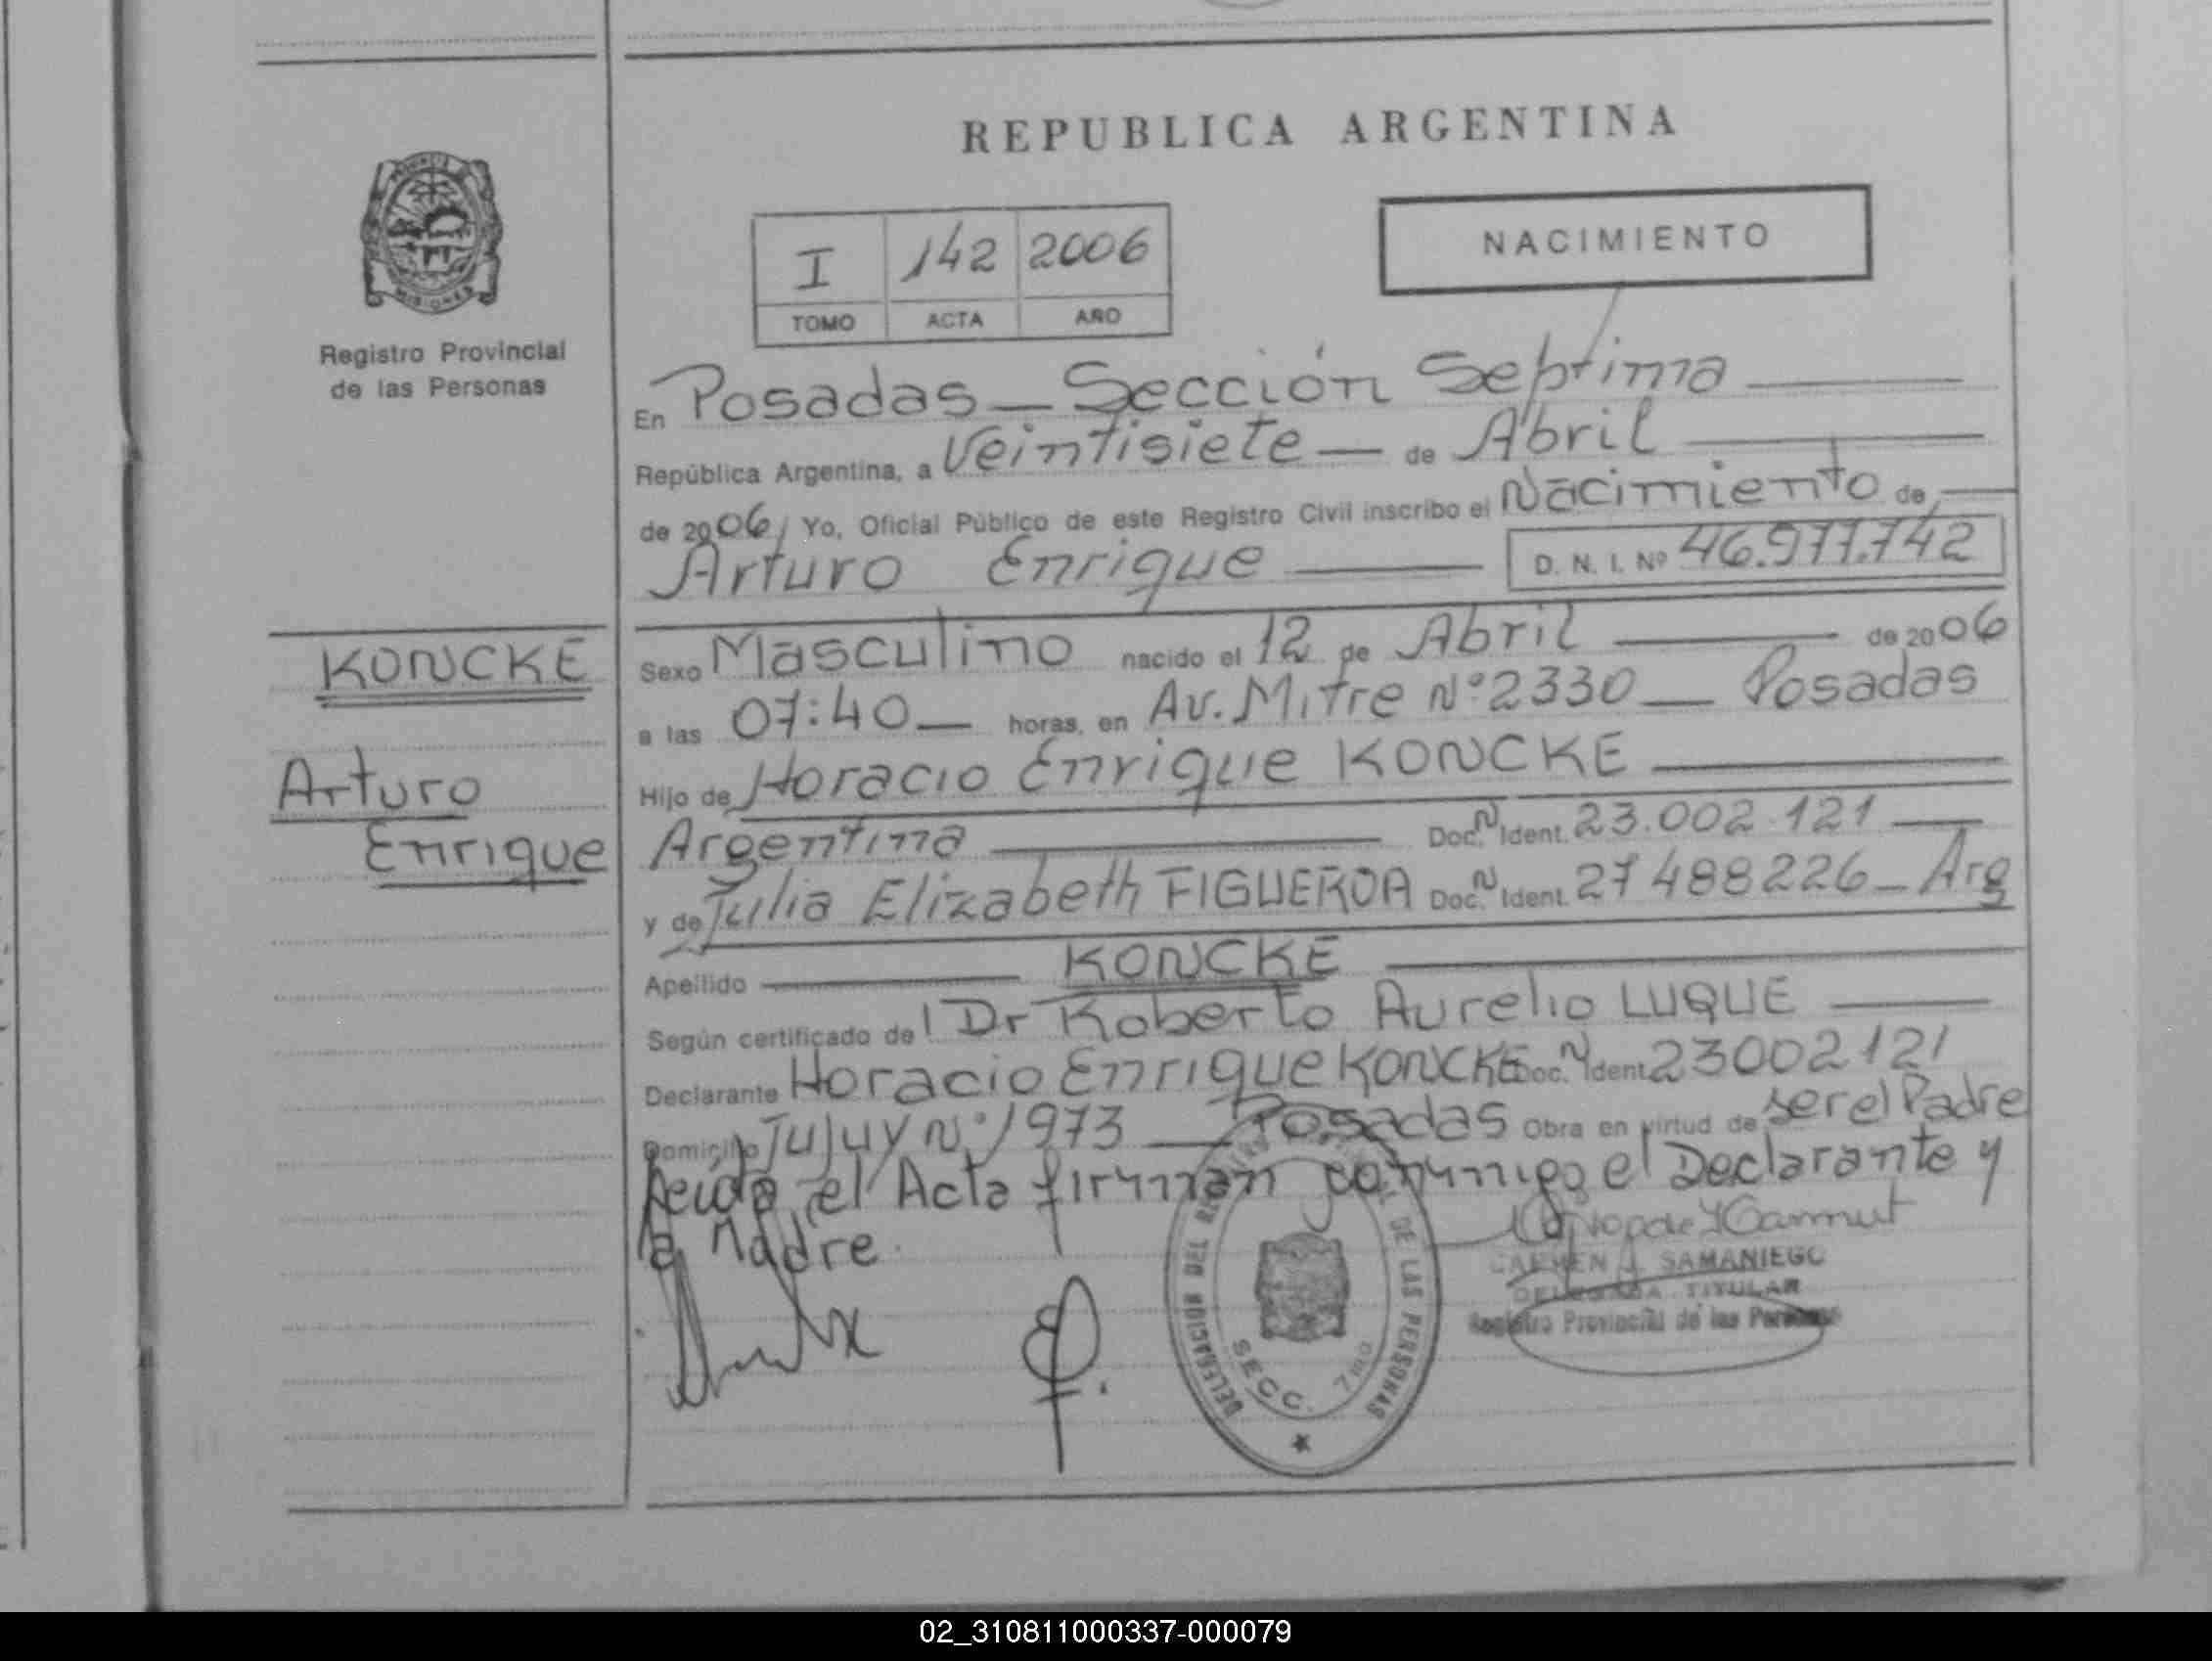 REPUBLICA ARGENTINA
PROVINCIA
MISIONES
Registro Provincial
de las Personas
I 142 2006
TOMO ACTA AÑO
NACIMIENTO
En Posadas — Sección Septima
República Argentina, a Veintisiete — de Abril
de 2006, Yo, Oficial Público de este Registro Civil inscribo el Nacimiento de
Arturo Enrique — D. N. I. Nº 46.977.742
KONCKE
Arturo
Enrique
Sexo Masculino nacido el 12 de Abril — de 2006
a las 07:40 — horas, en Av. Mitre Nº 2330 — Posadas
Hijo de Horacio Enrique KONCKE
Argentina — Doc. N Ident. 23.002.121 —
y de Julia Elizabeth FIGUEROA Doc. N Ident. 27488226 — Arg
Apellido — KONCKE —
Según certificado del Dr Roberto Aurelio LUQUE —
Declarante Horacio Enrique KONCKE Doc. N Ident 23002121
Domicilio Jujuy Nº 1973 — Posadas Obra en virtud de ser el Padre
Leida el Acta firman conmigo el Declarante y
la Madre.
CARMEN J. SAMANIEGO
DELEGADA TITULAR
Registro Provincial de las Personas
DELEGACION DEL DE LAS PERSONAS
SECC. 7
02_310811000337-000079